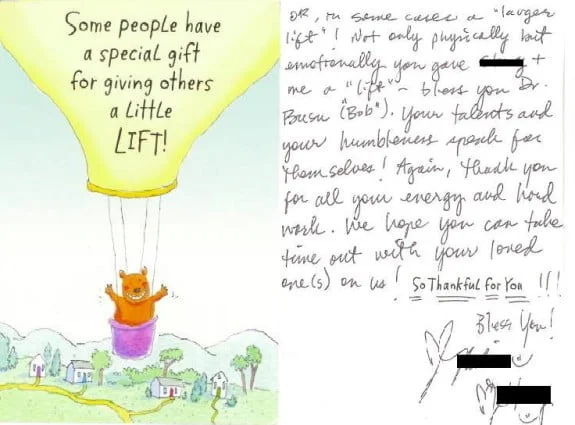 Some people have
a special gift
for giving others
a little
LIFT!
OR, in some cases a "larger
lift"! Not only physically but
emotionally you gave +
me a "lift" - bless you Dr.
("Bob"). Your talents and
your humbleness speak for
themselves! Again, thank you
for all your energy and hard
work. We hope you can take
time out with your loved
one(s) on us! So Thankful for You !!!
Bless You!